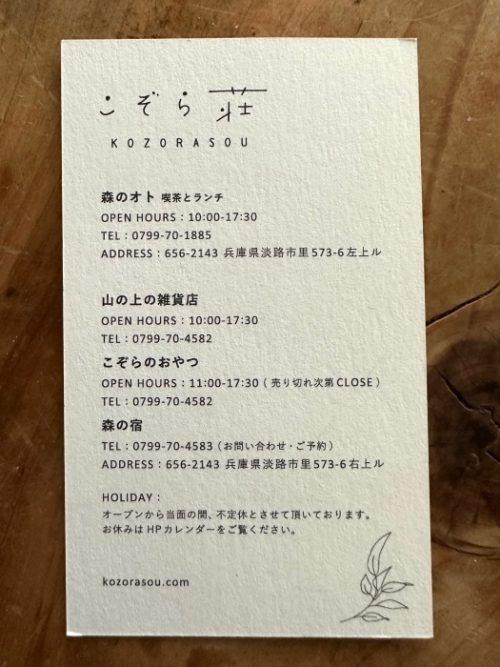 こぞら荘
KOZORASOU
森のオト 喫茶とランチ
OPEN HOURS：10:00-17:30
TEL：0799-70-1885
ADDRESS：656-2143 兵庫県淡路市里573-6左上ル
山の上の雑貨店
OPEN HOURS：10:00-17:30
TEL：0799-70-4582
こぞらのおやつ
OPEN HOURS：11:00-17:30（売り切れ次第CLOSE）
TEL：0799-70-4582
森の宿
TEL：0799-70-4583（お問い合わせ・ご予約）
ADDRESS：656-2143 兵庫県淡路市里573-6右上ル
HOLIDAY：
オープンから当面の間、不定休とさせて頂いております。
お休みはHPカレンダーをご覧ください。
kozorasou.com